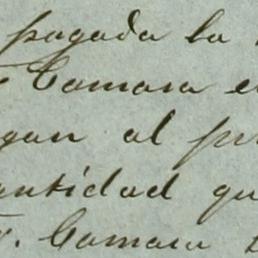 pagada la
Camara e
gan al pr
antidad qu
Camara